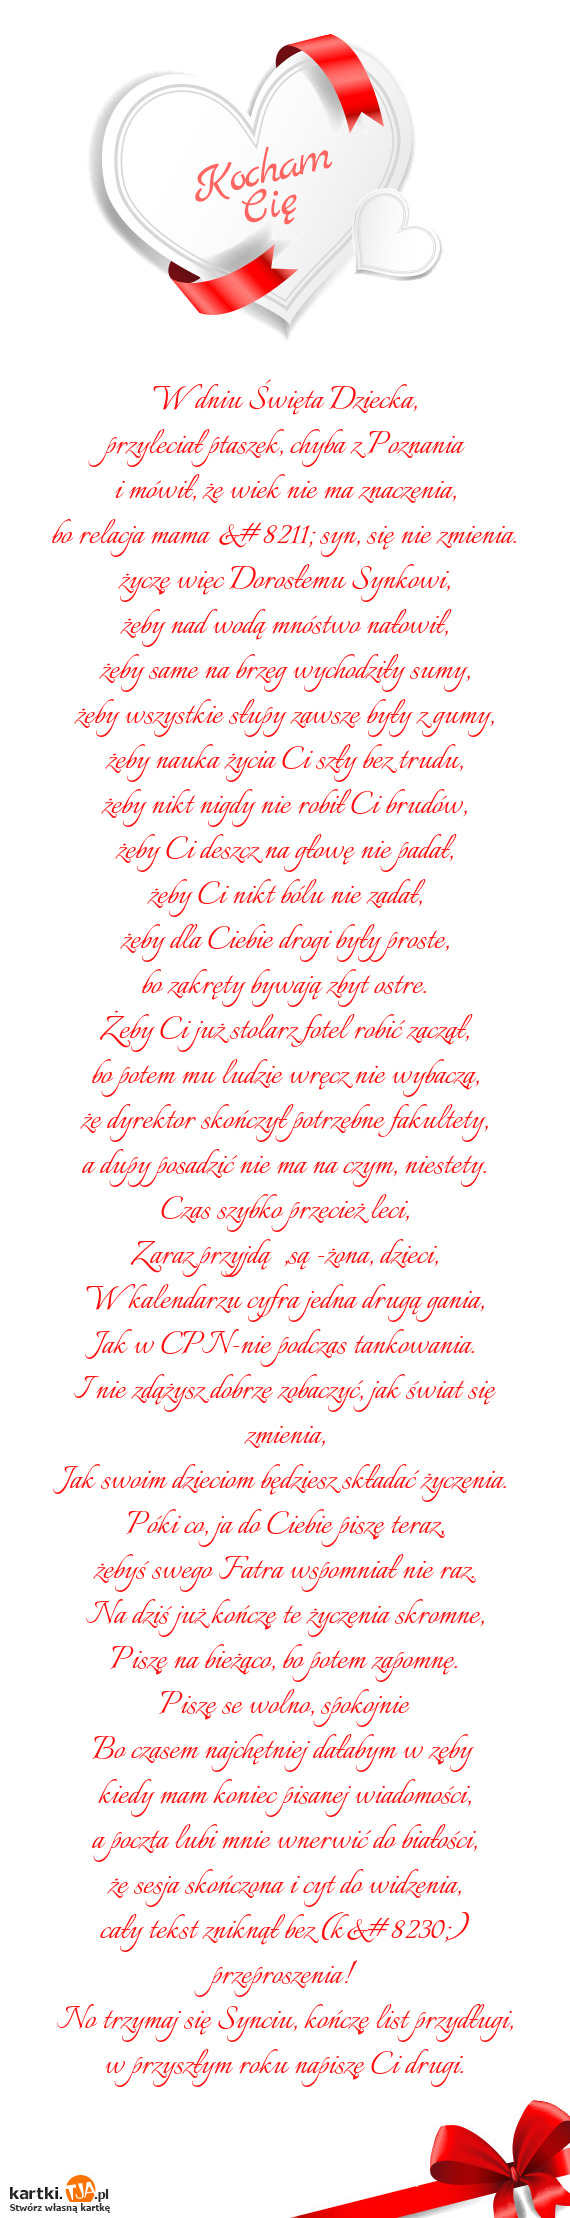 Kocham
Cię
W dniu Święta Dziecka,
przyleciał ptaszek, chyba z Poznania
i mówił, że wiek nie ma znaczenia,
bo relacja mama &#8211; syn, się nie zmienia.
życzę więc Dorosłemu Synkowi,
żeby nad wodą mnóstwo nałowił,
żeby same na brzeg wychodziły sumy,
żeby wszystkie słupy zawsze były z gumy,
żeby nauka życia Ci szły bez trudu,
żeby nikt nigdy nie robił Ci brudów,
żeby Ci deszcz na głowę nie padał,
żeby Ci nikt bólu nie zadał,
żeby dla Ciebie drogi były proste,
bo zakręty bywają zbyt ostre.
Żeby Ci już stolarz fotel robić zaczął,
bo potem mu ludzie wręcz nie wybaczą,
że dyrektor skończył potrzebne fakultety,
a dupy posadzić nie ma na czym, niestety.
Czas szybko przecież leci,
Zaraz przyjdą ,są -żona, dzieci,
W kalendarzu cyfra jedna drugą gania,
Jak w CPN-nie podczas tankowania.
I nie zdążysz dobrze zobaczyć, jak świat się
zmienia,
Jak swoim dzieciom będziesz składać życzenia.
Póki co, ja do Ciebie piszę teraz,
żebyś swego Fatra wspomniał nie raz.
Na dziś już kończę te życzenia skromne,
Piszę na bieżąco, bo potem zapomnę.
Piszę se wolno, spokojnie
Bo czasem najchętniej dałabym w zęby
kiedy mam koniec pisanej wiadomości,
a poczta lubi mnie wnerwić do białości,
że sesja skończona i cyt do widzenia,
cały tekst zniknął bez (k&#8230;)
przeproszenia!
No trzymaj się Synciu, kończę list przydługi,
w przyszłym roku napiszę Ci drugi.
kartki.TJA.pl
Stwórz własną kartkę